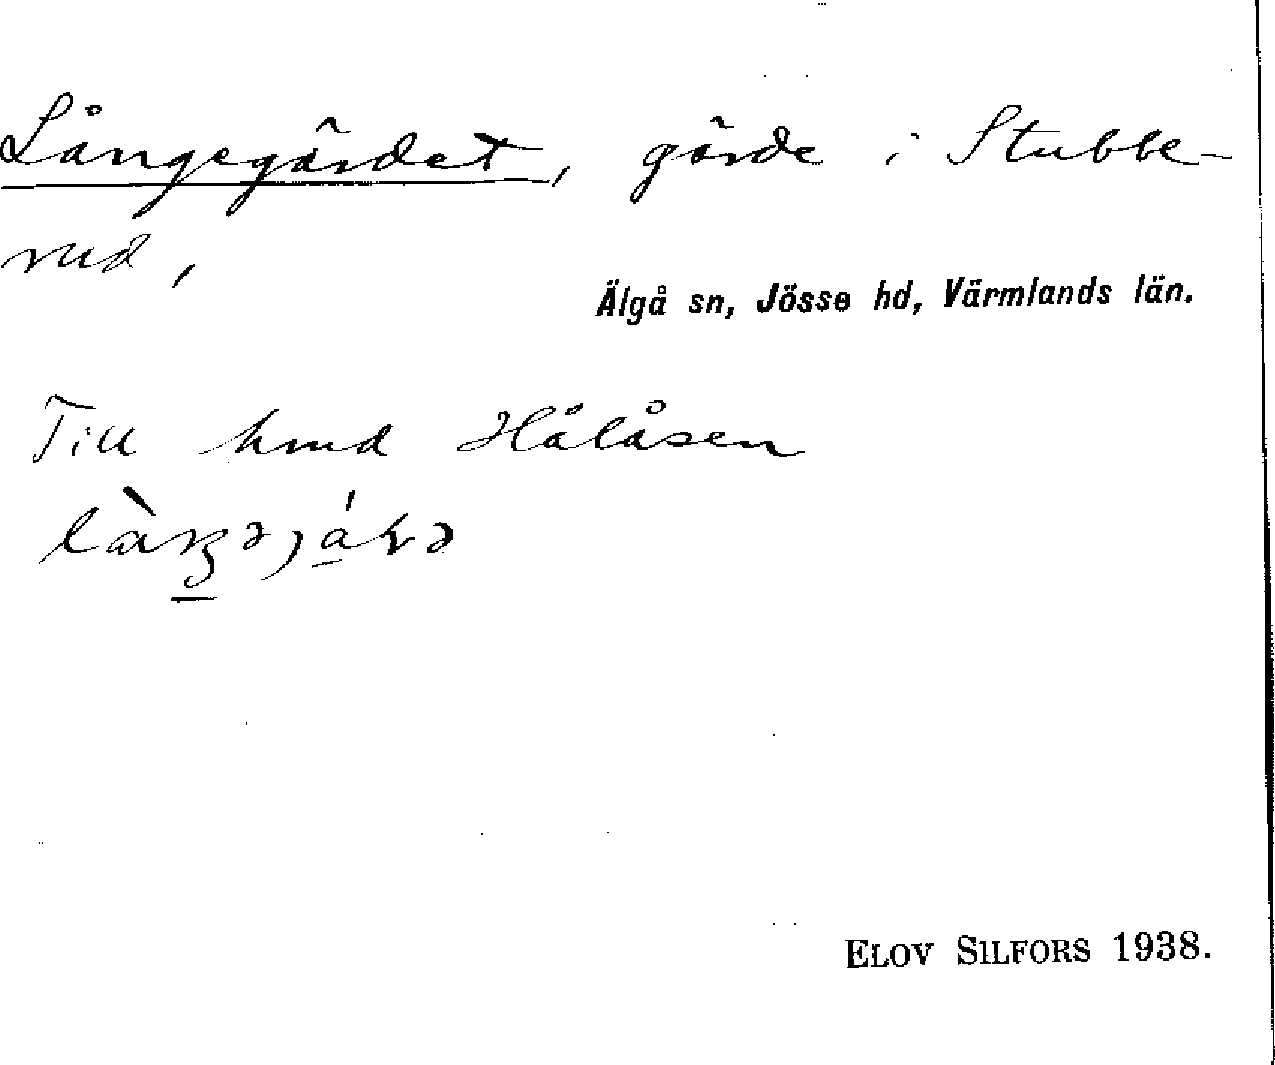 Långegärdet, gärde i Stubbe-
rud,
Älgå sn, Jösse hd, Värmlands län.
Till hmd Hålåsen
ELOV SILFORS 1938.